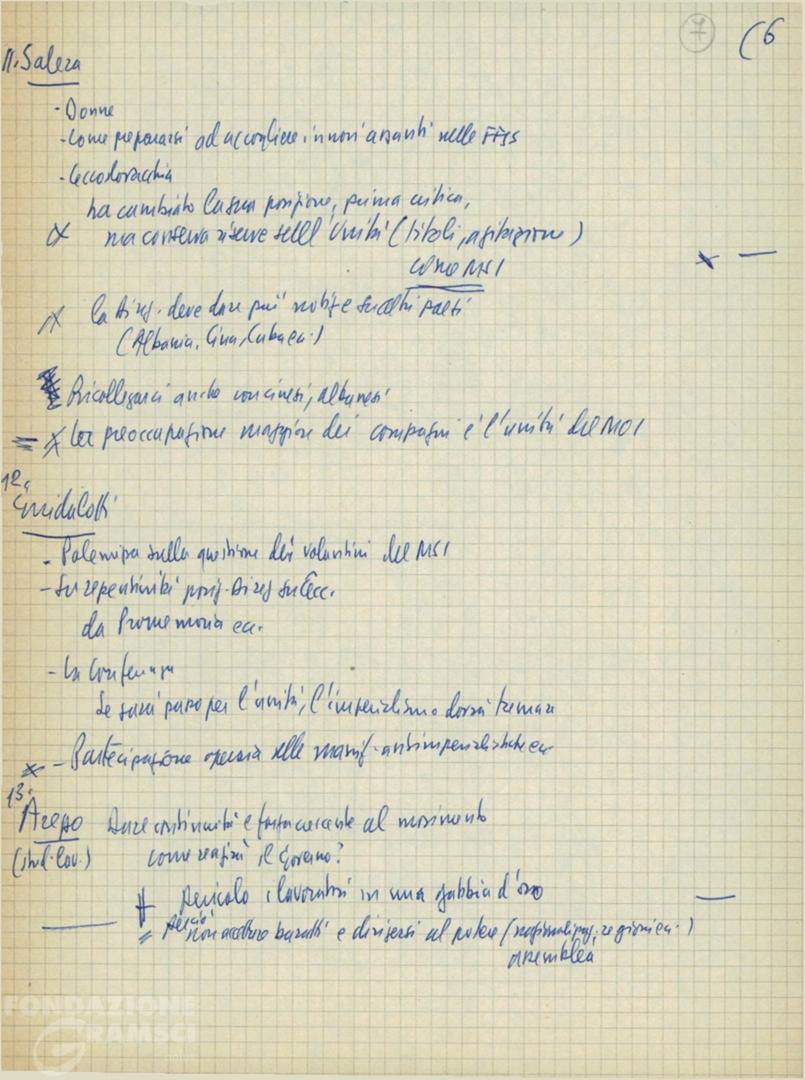 7 (6
11. Salera
- Donne
- Come prepararsi ad accogliere i nuovi assunti nelle FFSS
- Cecoslovacchia
ha cambiato la sua posizione, prima critica,
x ma conserva riserve sull'Unità (titoli, agitazione)
come MSI x —
x la Direz. deve dare più notizie su altri paesi
(Albania, Cina, Cuba ecc.)
Ricollegarci anche con cinesi, albanesi
= x La preoccupazione maggiore dei compagni è l'unità del MOI
12.
Guidalotti
- Polemica sulla questione dei volantini del MSI
- Su repentinità posiz. Direz. su Cec.
da Promemoria ecc.
- La Conferenza
Se sarà passo per l'unità, l'imperialismo dovrà tremare
x - Partecipazione operaia nelle manif. antimperialistiche ecc.
13.
Arezzo Dare continuità e forza crescente al movimento
(stud. lav.) come reagirà il Governo?
Pericolo i lavoratori in una gabbia d'oro —
— = Perciò non accettare baratti e dirigersi al potere (regioni ecc.)
assemblea
FONDAZIONE
GRAMSCI